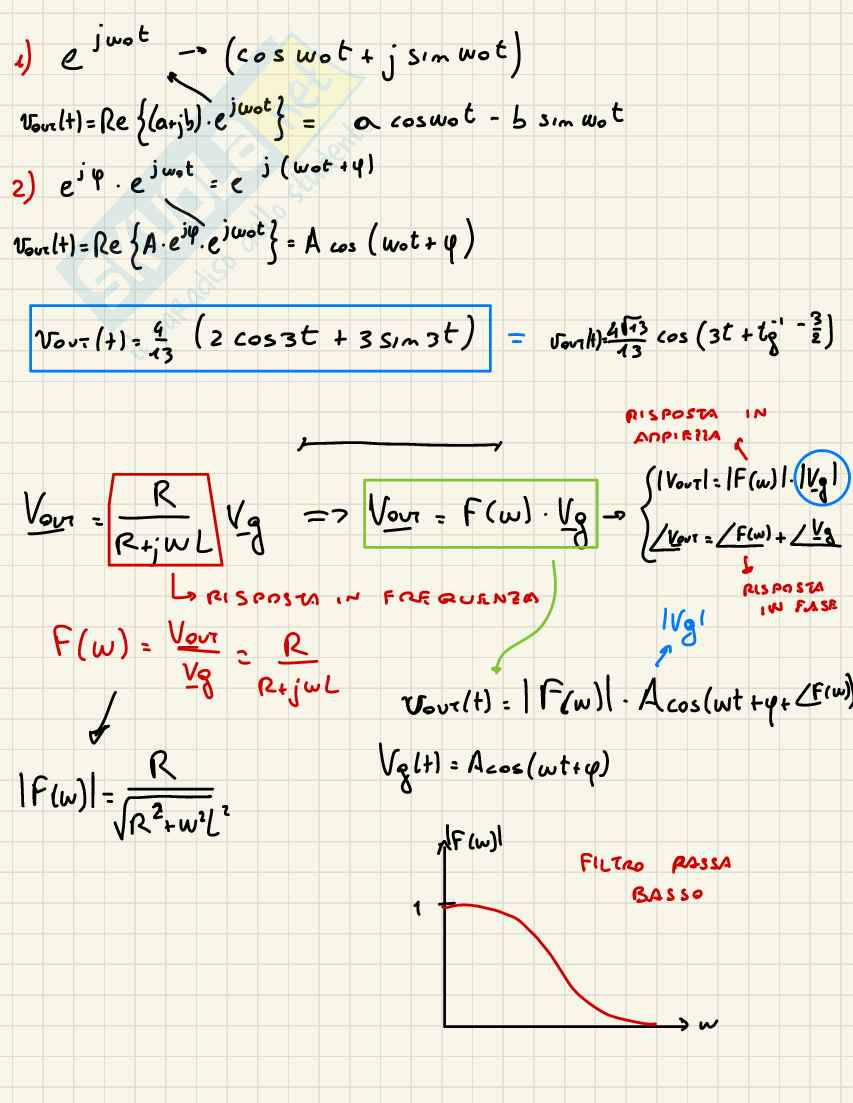 1) e^{jω₀t} → (cos ω₀t + j sin ω₀t)
v_out(t) = Re {(a+jb)·e^{jω₀t}} = a cos ω₀t - b sin ω₀t
2) e^{jφ} · e^{jω₀t} = e^{j(ω₀t+φ)}
v_out(t) = Re {A·e^{jφ}·e^{jω₀t}} = A cos (ω₀t + φ)
v_out(t) = 4/13 (2 cos 3t + 3 sin 3t) = v_out(t) = 4√13/13 cos (3t + tg⁻¹ - 3/2)
RISPOSTA IN
AMPIEZZA
V_out = R/(R+jωL) V_g => V_out = F(ω) · V_g → { |V_out| = |F(ω)| · |V_g|
∠V_out = ∠F(ω) + ∠V_g
RISPOSTA
IN FASE
↳ RISPOSTA IN FREQUENZA
F(ω) = V_out/V_g = R/(R+jωL)
|Vg|
v_out(t) = |F(ω)| · A cos(ωt + φ + ∠F(ω))
V_g(t) = A cos(ωt+φ)
|F(ω)| = R/√(R²+ω²L²)
|F(ω)|
FILTRO PASSA
BASSO
1
ω